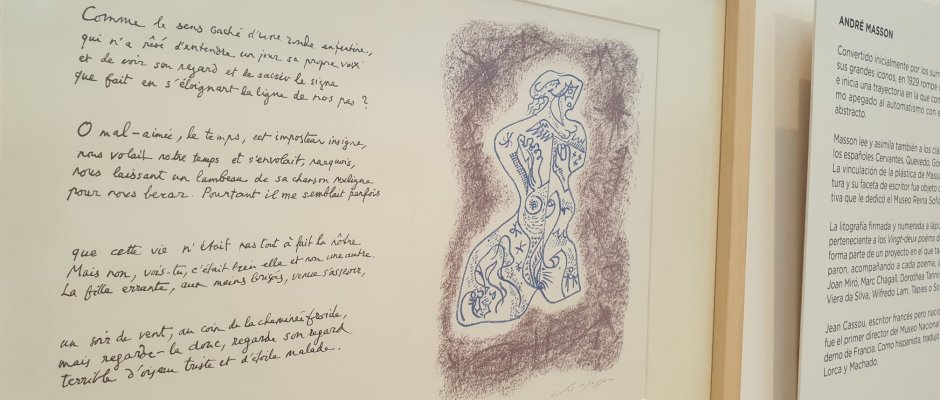 Comme le sens caché d'une ronde enfantine,
qui n'a rêvé d'entendre un jour sa propre voix
et de voir son regard et de saisir le signe
que fait en s'éloignant la ligne de nos pas ?
O mal-aimée, le temps, cet imposteur insigne,
nous volait notre temps et s'envolait, narquois,
nous laissant un lambeau de sa chanson maligne
pour nous bercer. Pourtant il me semblait parfois
que cette vie n'était pas tout à fait la nôtre.
Mais non, vois-tu, c'était bien elle et non une autre.
La fille errante, aux mains brûlées, venue s'asseoir,
un soir de vent, au coin de la cheminée froide,
mais regarde-la donc, regarde son regard
terrible d'oiseau triste et d'étoile malade.
ANDRÉ MASSON
Convertido inicialmente por los sur
sus grandes iconos, en 1929 rompe
e inicia una trayectoria en la que com
mo apegado al automatismo con e
abstracto.
Masson lee y asimila también a los clá
los españoles Cervantes, Quevedo, Gón
La vinculación de la plástica de Masso
tura y su faceta de escritor fue objeto d
tiva que le dedicó el Museo Reina Sofía
La litografía firmada y numerada a lápi
perteneciente a los Vingt-deux poèmes d
forma parte de un proyecto en el que ta
paron, acompañando a cada poema, a
Joan Miró, Marc Chagall, Dorothea Tannin
Viera da Silva, Wifredo Lam, Tàpies o So
Jean Cassou, escritor francés pero nació
fue el primer director del Museo Nacional
derno de Francia. Como hispanista, tradujo
Lorca y Machado.